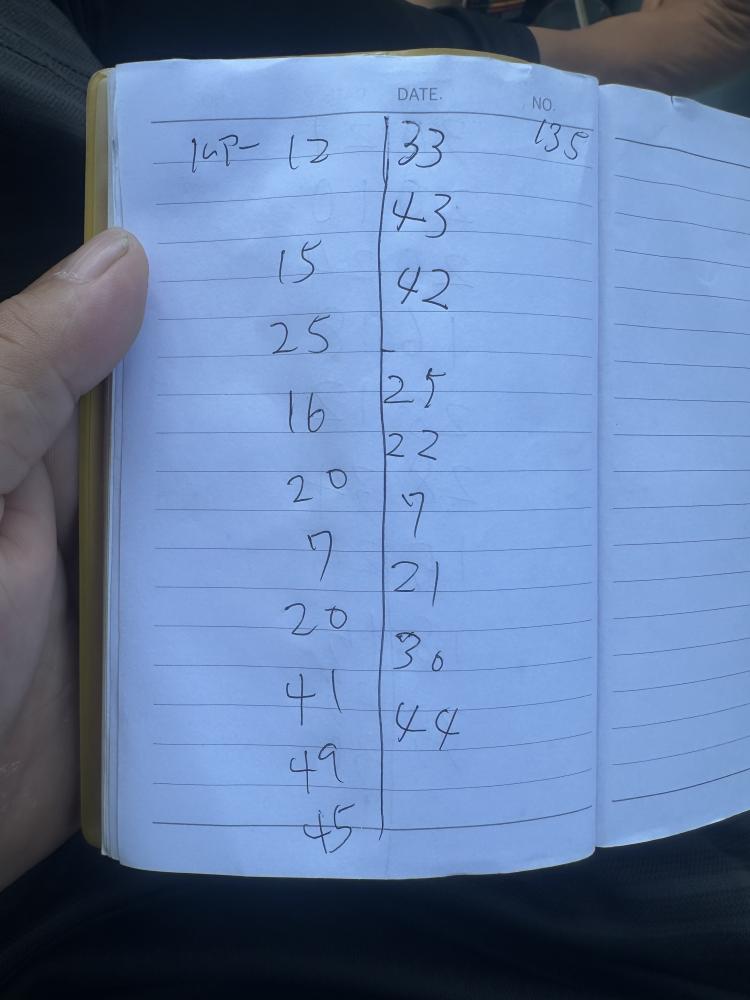 DATE.
NO.
12 33 135
43
15
42
25
16 25
22
20
7
7
21
20
30
41
44
49
45